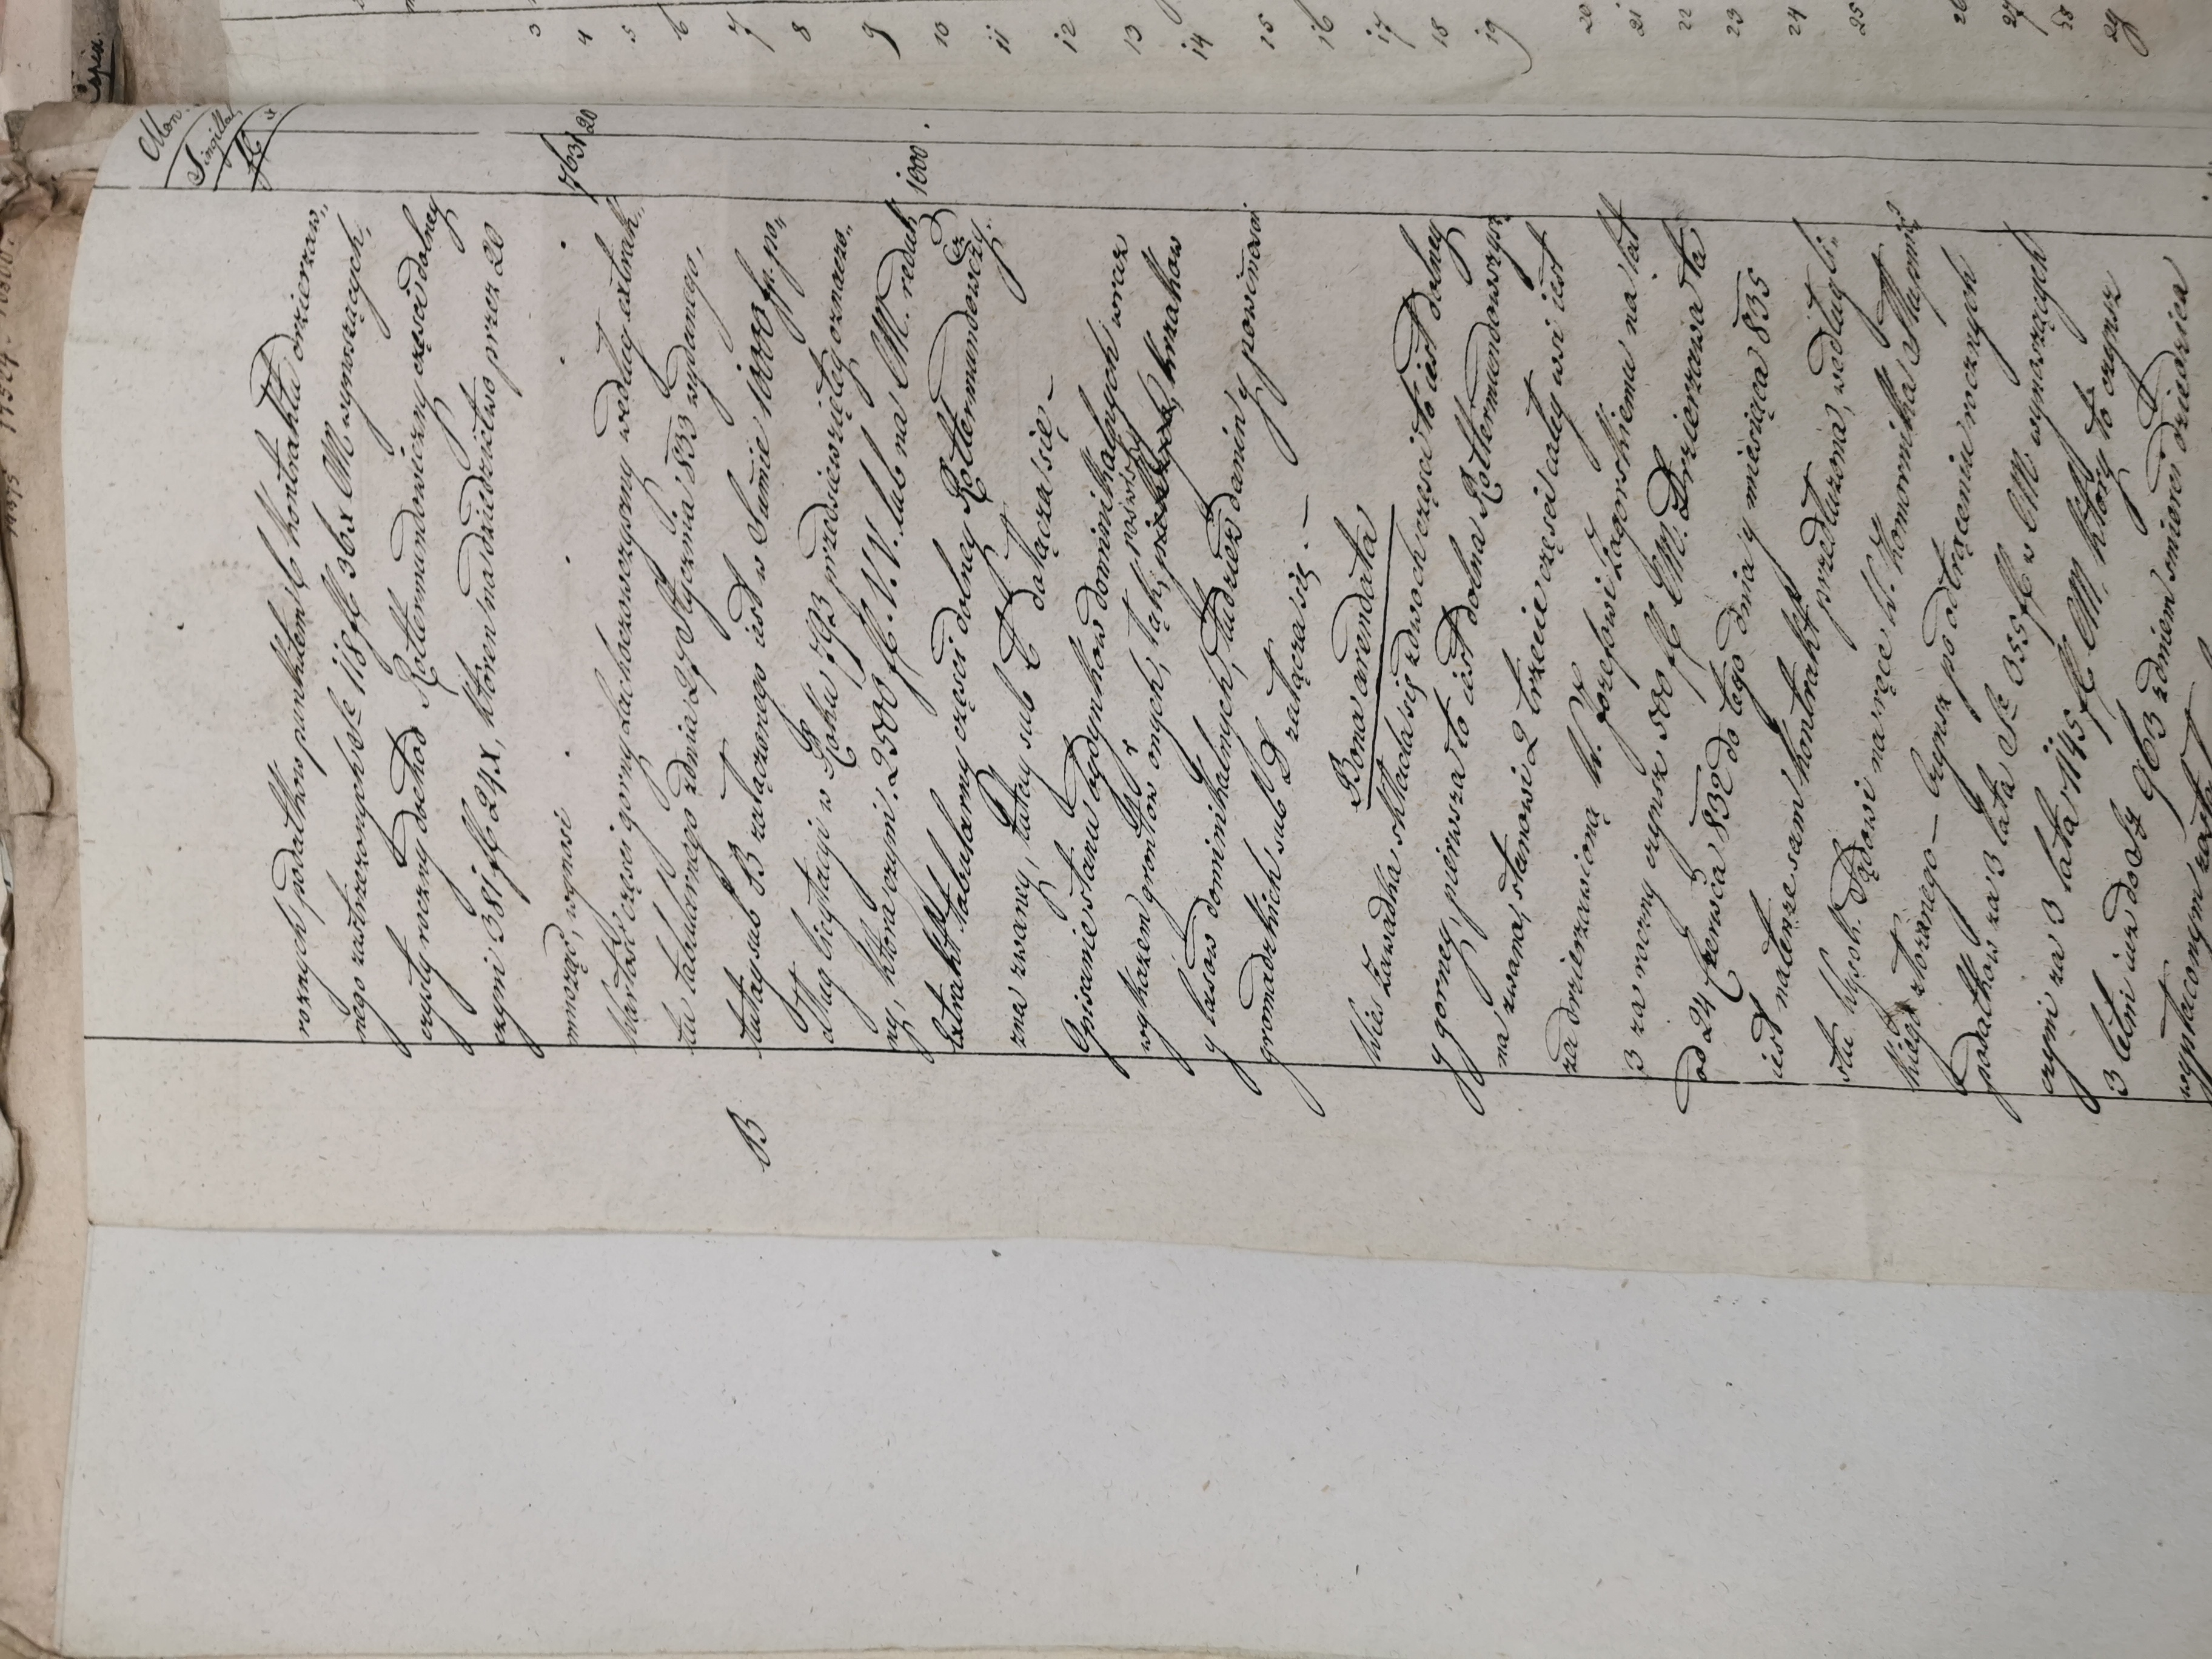 Mon.
Singillat.
fl. x
rocznych podatków punktem 6 kontraktu dzierzaw„
nego zastrzezonych de 118 fl 36 x CM wynoszących,
czysty roczny dochod Rottermundowiczny części dolney
czyni 381 fl 24 x, ktoren na dziedzictwo przez 20
mnożąc, wynosi . . . 7631 20
Wartość części gorny Lachoczowszczyzny według extrak„
tu tabularnego z dnia 27 Stycznia 833 wydanego,
B
tutay sub B załączonego iest w Sumie 10000 fp. po„
dług licytacyi w Roku 793 przedsięwziętey oznaczo„
ny, ktora czyni 2500 fl. V. V. lub na CM. reduk 1000 .
Extrakt tabularny części dolney Rottermundowszczy„
zna zwaney, tutay sub C dołącza się –
Opisanie stanu budynków dominikalnych wraz
wykazem gruntow onych, łąk, pastwisk, krzakow
y lasow dominikalnych, tudzież danin y powinnosci
gromadzkich sub D załącza się. –
Bona arendata
Wieś Zawadka składa się z dwoch części to iest dolney
y gorney, pierwsza to iest dolna Rottermundowszyz„
na zwana, stanowi 2 trzecie części całey wsi iest
za dzierzawioną W. Jozefowi Zagorskiemu na lat
3 za roczny czynsz 500 fl CM. Dzierzawa ta
od 24 Czerwca 832 do tego dnia y miesiąca 835
iest na tenze sam kontrakt przedłuzona, według li„
stu Wysok. Sądowi na ręce W. Komornika Słupnic
kiego złozonego – Czynsz po odtrąceniu rocznych
podatkow za 3 lata de 355 fl w CM. wynoszących
czyni za 3 lata 1145 fl CM. ktory to czynsz
3 letni iuz do 963 z dniem smierci dziedzica
wypłaconym został
3
4
5
6
7
8
9
10
11
12
13
14
15
16
17
18
19
20
21
22
23
24
25
26
27
28
29